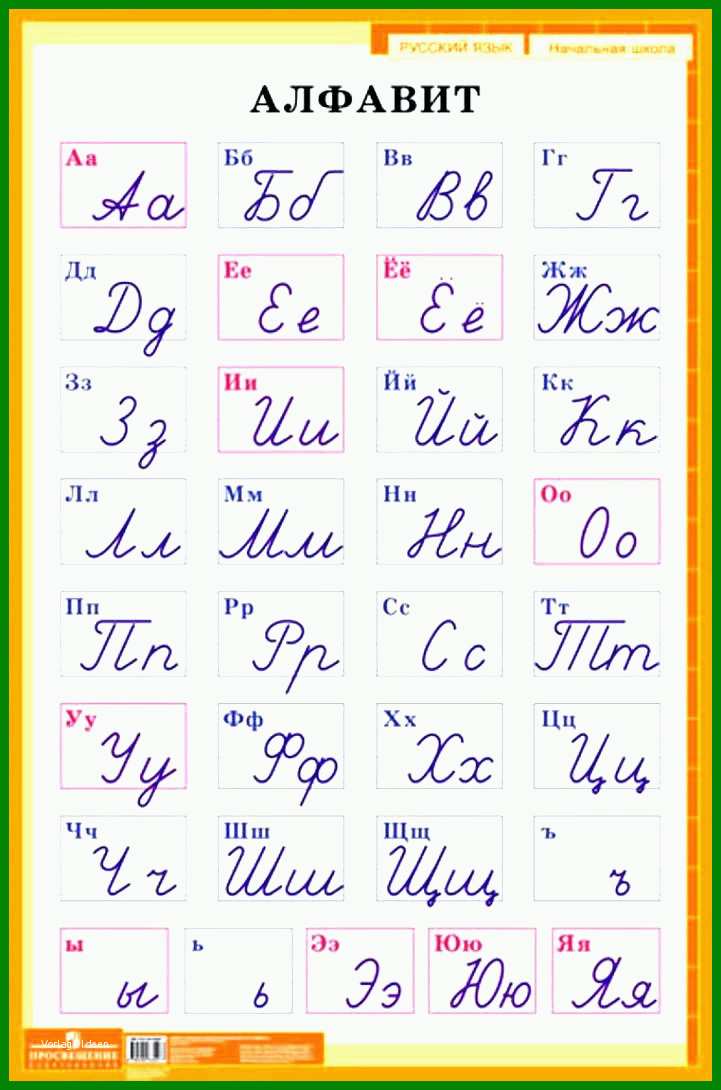 РУССКИЙ ЯЗЫК Начальная школа
АЛФАВИТ
Аа Бб Вв Гг
Аа Бб Вв Гг
Дд Ее Ёё Жж
Дд Ее Ёё Жж
Зз Ии Йй Кк
Зз Ии Йй Кк
Лл Мм Нн Оо
Лл Мм Нн Оо
Пп Рр Сс Тт
Пп Рр Сс Тт
Уу Фф Хх Цц
Уу Фф Хх Цц
Чч Шш Щщ ъ
Чч Шш Щщ ъ
ы ь Ээ Юю Яя
ы ь Ээ Юю Яя
Vorlage Ideen
ПРОСВЕЩЕНИЕ